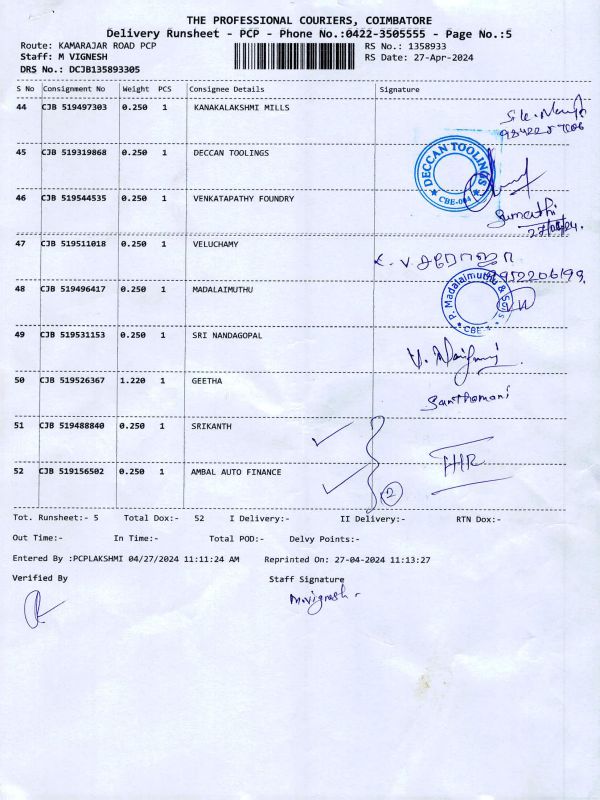 THE PROFESSIONAL COURIERS, COIMBATORE
Delivery Runsheet - PCP - Phone No.:0422-3505555 - Page No.:5
Route: KAMARAJAR ROAD PCP RS No.: 1358933
Staff: M VIGNESH RS Date: 27-Apr-2024
DRS No.: DCJB135893305
S No Consignment No Weight PCS Consignee Details Signature
44 CJB 519497303 0.250 1 KANAKALAKSHMI MILLS
45 CJB 519319868 0.250 1 DECCAN TOOLINGS
DECCAN TOOLINGS
★ CBE-004 ★
46 CJB 519544535 0.250 1 VENKATAPATHY FOUNDRY
Sumathi
47 CJB 519511018 0.250 1 VELUCHAMY
48 CJB 519496417 0.250 1 MADALAIMUTHU
P. Madalaimuthu & Sons
49 CJB 519531153 0.250 1 SRI NANDAGOPAL
50 CJB 519526367 1.220 1 GEETHA
Santhamani
51 CJB 519488840 0.250 1 SRIKANTH
52 CJB 519156502 0.250 1 AMBAL AUTO FINANCE
2
Tot. Runsheet:- 5 Total Dox:- 52 I Delivery:- II Delivery:- RTN Dox:-
Out Time:- In Time:- Total POD:- Delvy Points:-
Entered By :PCPLAKSHMI 04/27/2024 11:11:24 AM Reprinted On: 27-04-2024 11:13:27
Verified By Staff Signature
M.vignesh